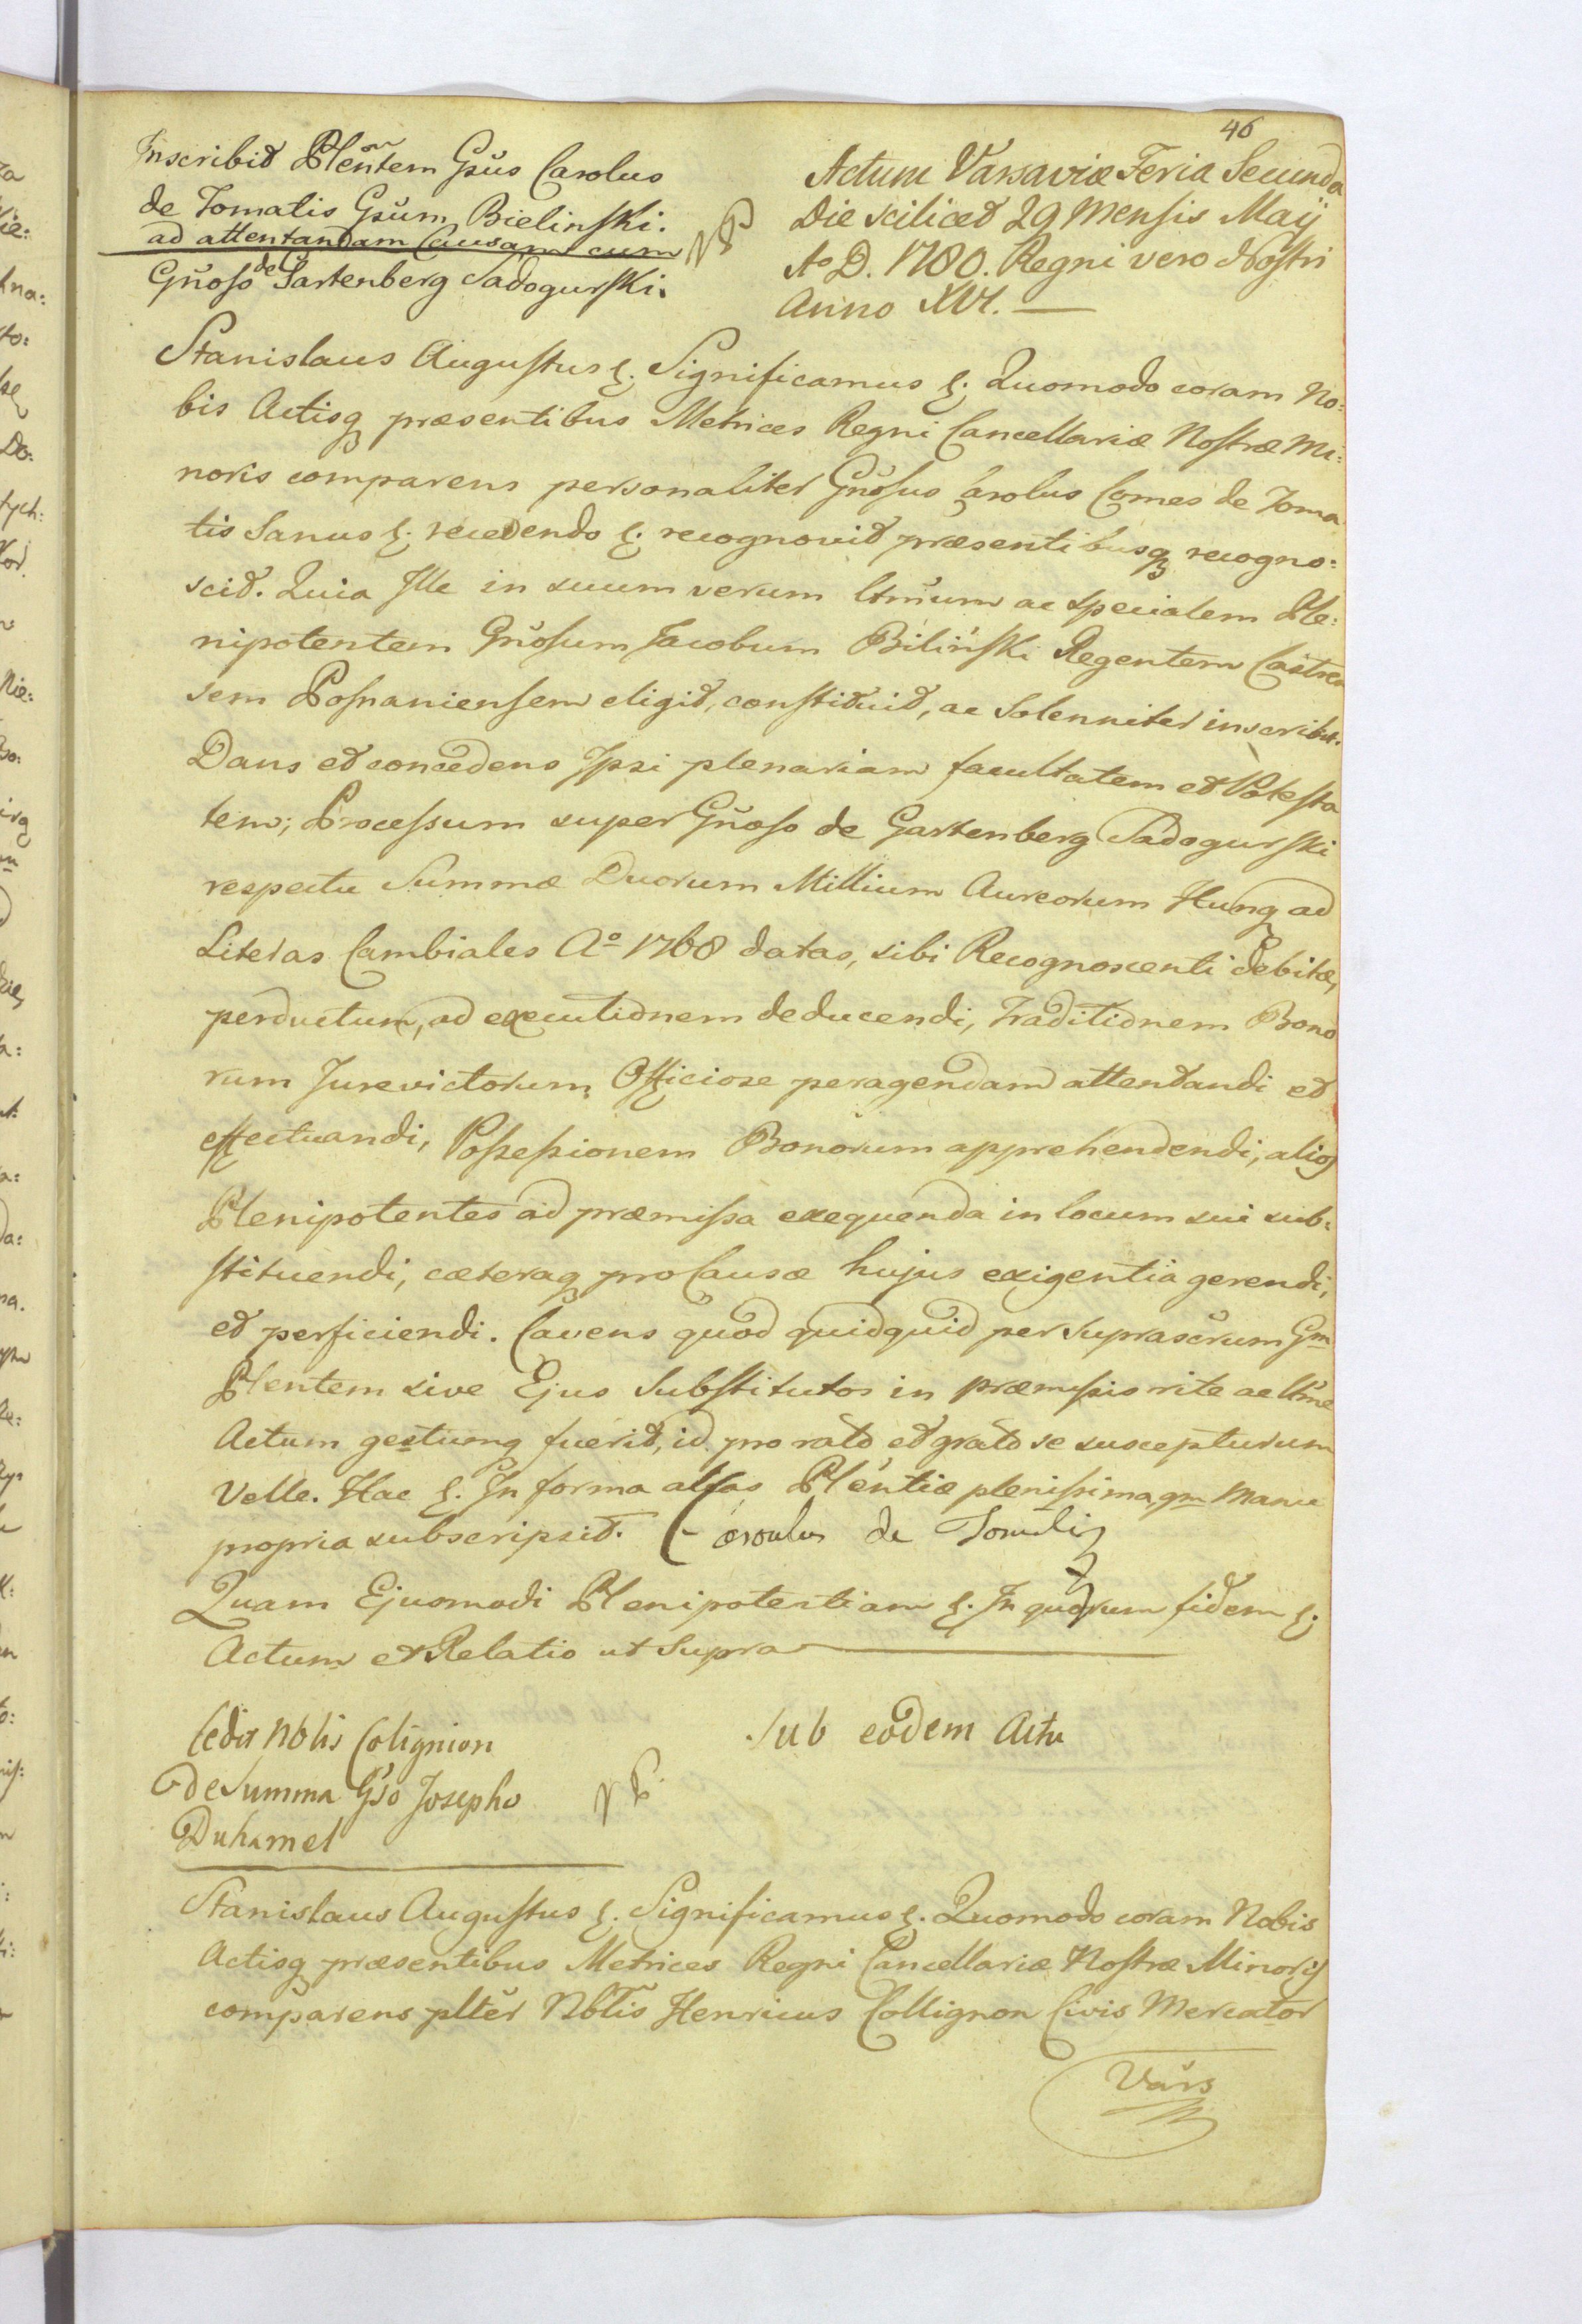 46
Inscribit Plen̄tem Gsūs Carolus
de Tomatis Gsūm Bielinski.
ad attentandam Causam cum
Gn̄oso de Gartenberg Sadogurski.
Actum Varsaviæ Feria Secunda
Die scilicet 29 Mensis Maij
Aō D. 1780. Regni vero Nostri
Anno XVI. —
Stanislaus Augustus &. Significamus &. Quomodo coram No:
bis Actisq præsentibus Metrices Regni Cancellariæ Nostræ Mi:
noris comparens personaliter Gn̄osus Carolus Comes de Toma
tis Sanus &. recedendo &. recognovit præsentibusq recogno:
scit. Quia Ille in suum verum ltm̄um ac specialem Ple:
nipotentem Gn̄osum Jacobum Biliński Regentem Castren
sem Posnaniensem eligit, constituit, ac Solenniter inscribit.
Dans et concedens Ipsi plenariam facultatem et Potesta
tem; Processum super Gn̄oso de Gartenberg Sadogurski
respectu Summæ Duorum Millium Aureorum Hung ad
Literas Cambiales Aō 1768 datas, sibi Recognoscenti debitæ,
perductum, ad executionem deducendi, Traditionem Bono
rum Jurevictorum, Officiose peragendam attentandi et
effectuandi, Possessionem Bonorum apprehendendi, alios
Plenipotentes ad præmissa exequenda in locum sui sub:
stituendi, cæteraq pro Causæ hujus exigentia gerendi,
et perficiendi. Cavens quod quidquid per suprascrum Gm
Plentem sive Ejus Substitutos in præmissis rite ac ltm̄e
Actum gestumq fuerit, id pro rato et grato se suscepturum
Velle. Hac &. In forma alias Pléntiæ plenissima, qm Manu
propria subscripsit. Carolus de Tomatis
Quam Ejusmodi Plenipotentiam &. In quorum fidem &.
Actum et Relatio ut Supra
Cedit Nblis Colignion
de Summa Gso Josepho
Duhamel
Sub eodem Actu
Stanislaus Augustus &. Significamus &. Quomodo coram Nobis
Actisq præsentibus Metrices Regni Cancellariæ Nostræ Minoris
comparens pltēr Nbtlis Henricus Collignon Civis Mercator
Vars